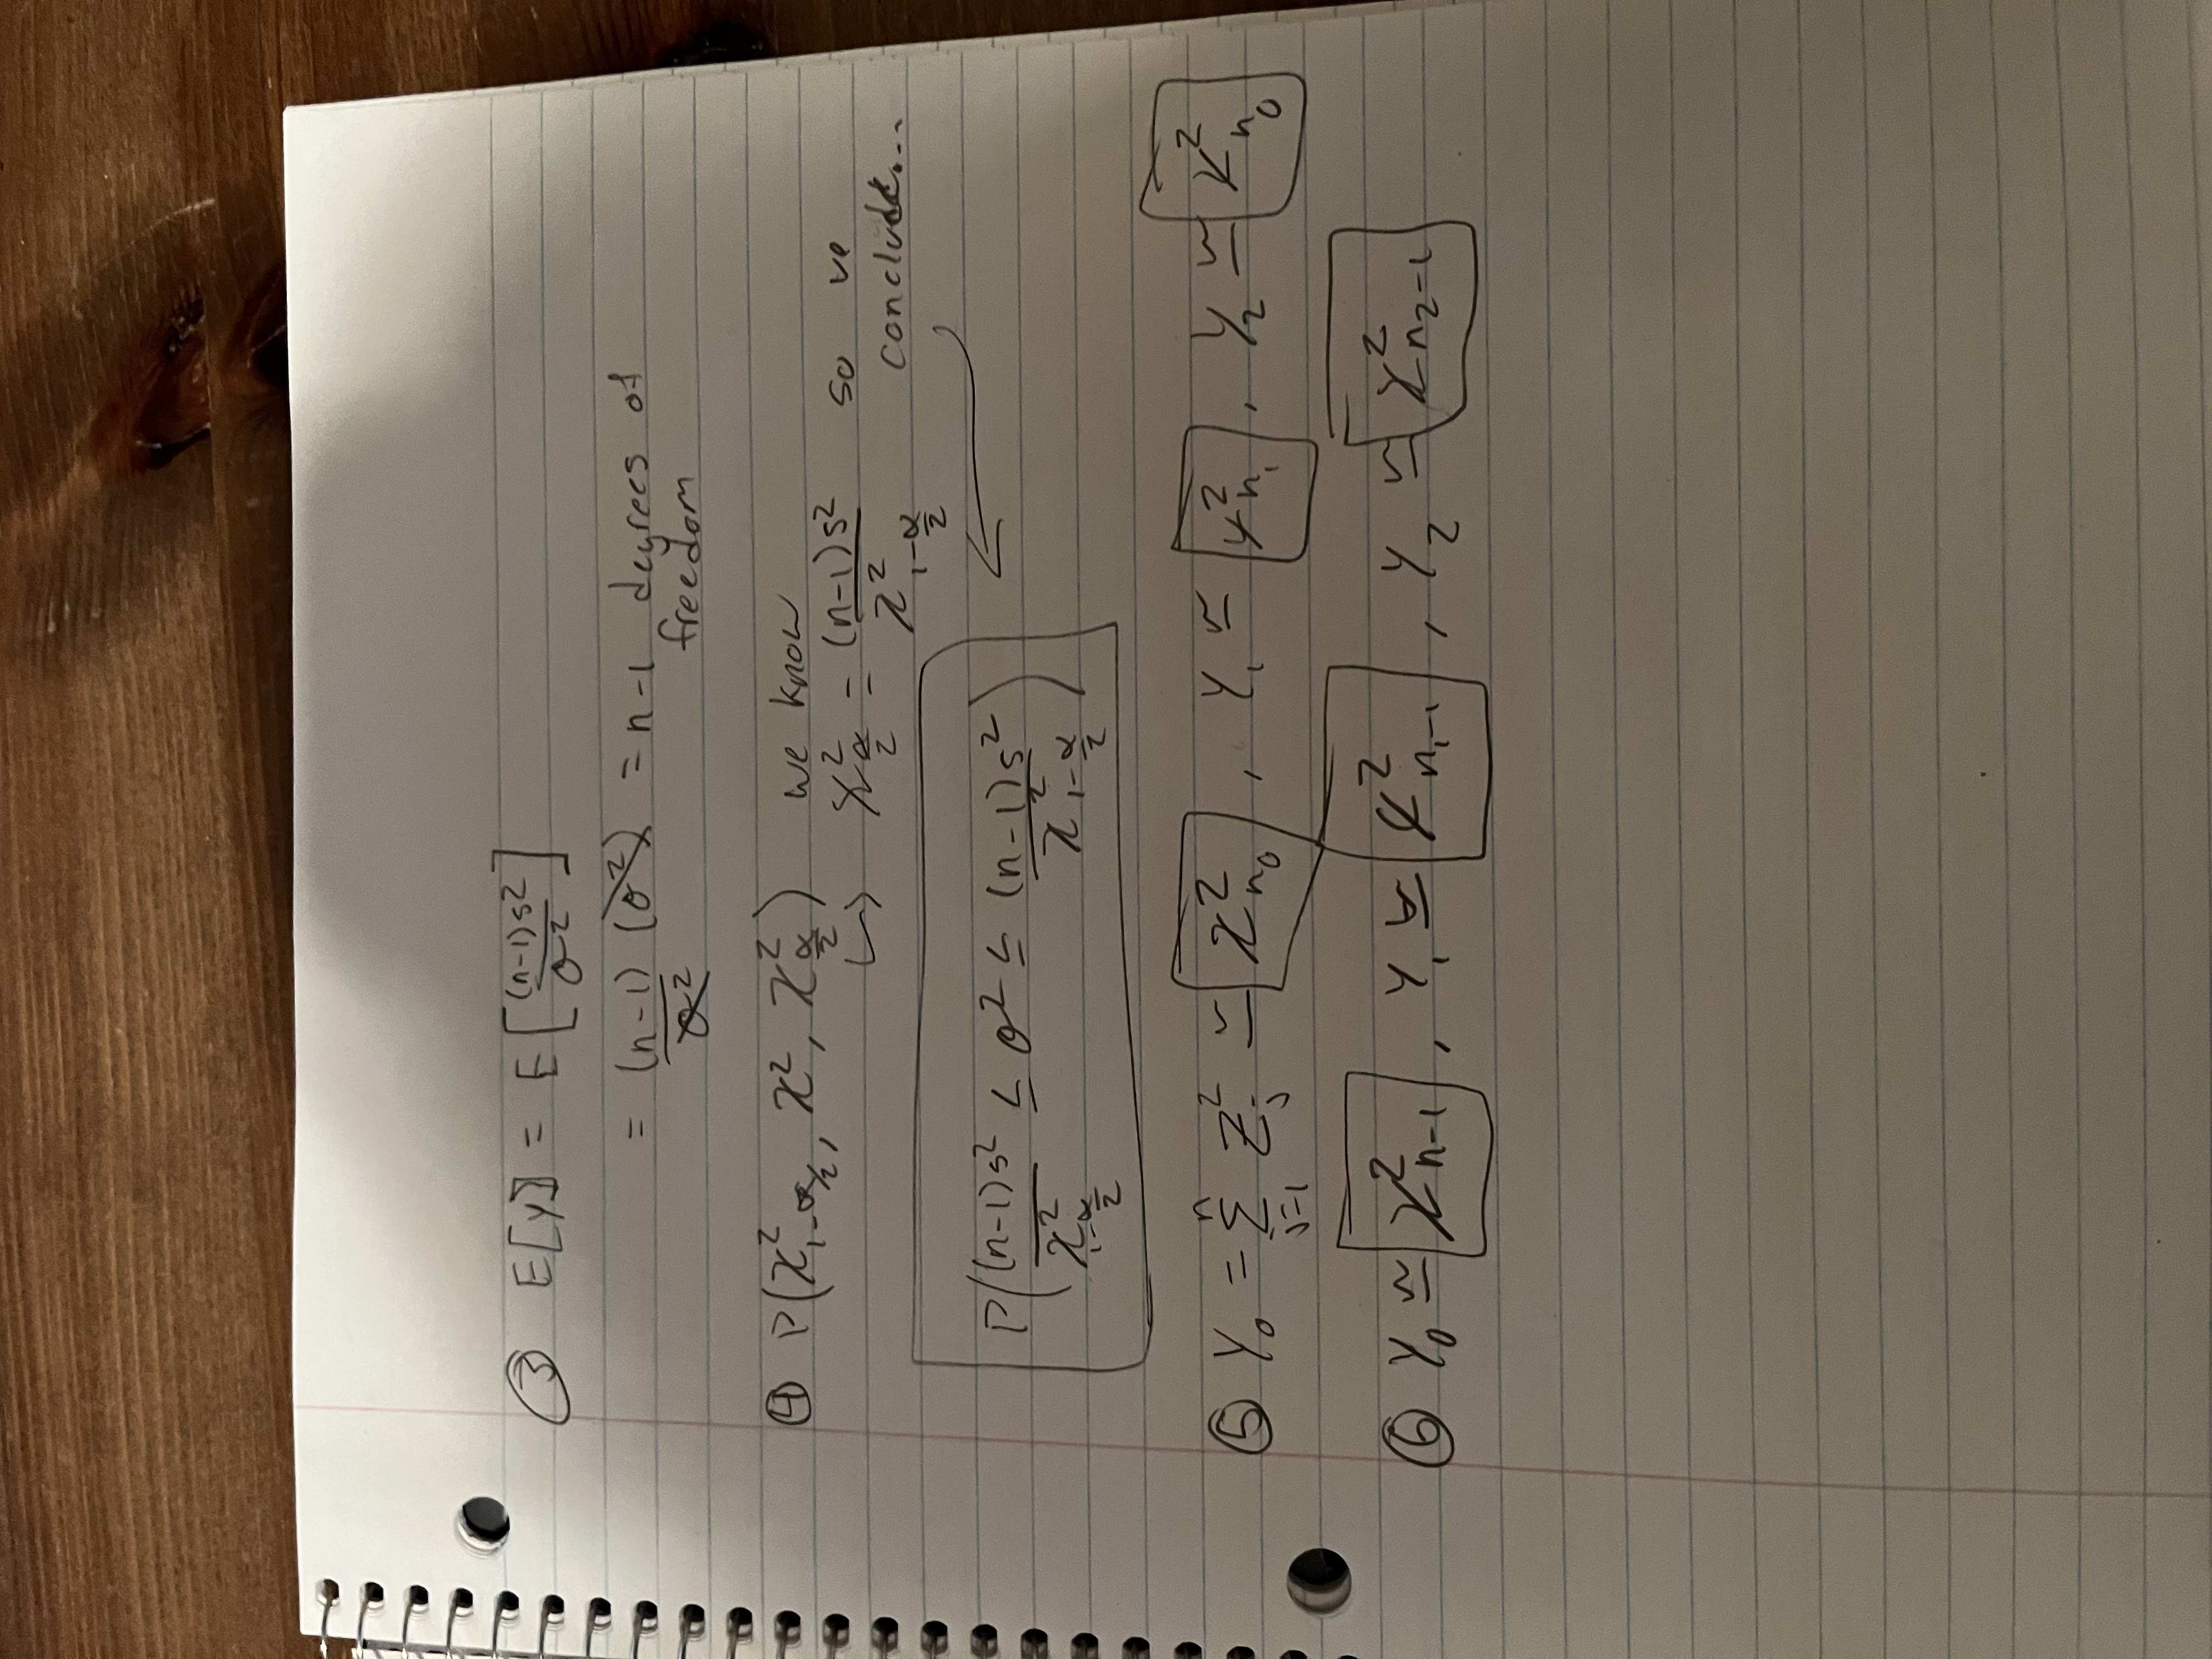 ③ E[Y] = E[(n-1)s²/σ²]
= (n-1)/σ² (σ²) = n-1 degrees of
freedom
④ P(χ²_{1-α/2}, χ², χ²_{α/2}) we know
↪ χ²_{α/2} = (n-1)s²/χ²_{1-α/2} so we
conclude...
P((n-1)s²/χ²_{1-α/2} ≤ σ² ≤ (n-1)s²/χ²_{1-α/2})
⑤ Y₀ = Σ_{j=1}^{n} Z_j² ≃ χ²_{n₀}, Y₁ ≃ χ²_{n₁}, Y₂ ≃ χ²_{n₀}
⑥ Y₀ ≃ χ²_{n-1}, Y₁ ≃ χ²_{n₁-1}, Y₂ ≃ χ²_{n₂-1}